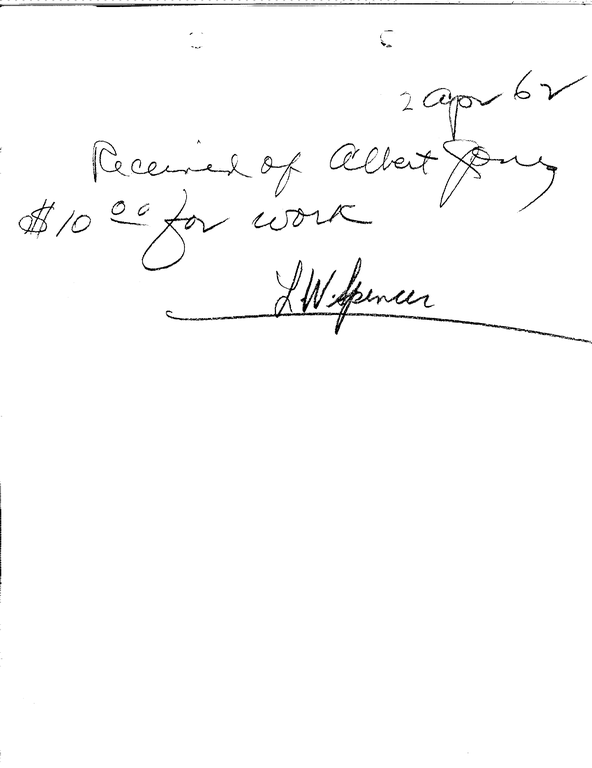 2 Apr 62
Received of Albert Jones
$10 00 for work
L W Spencer